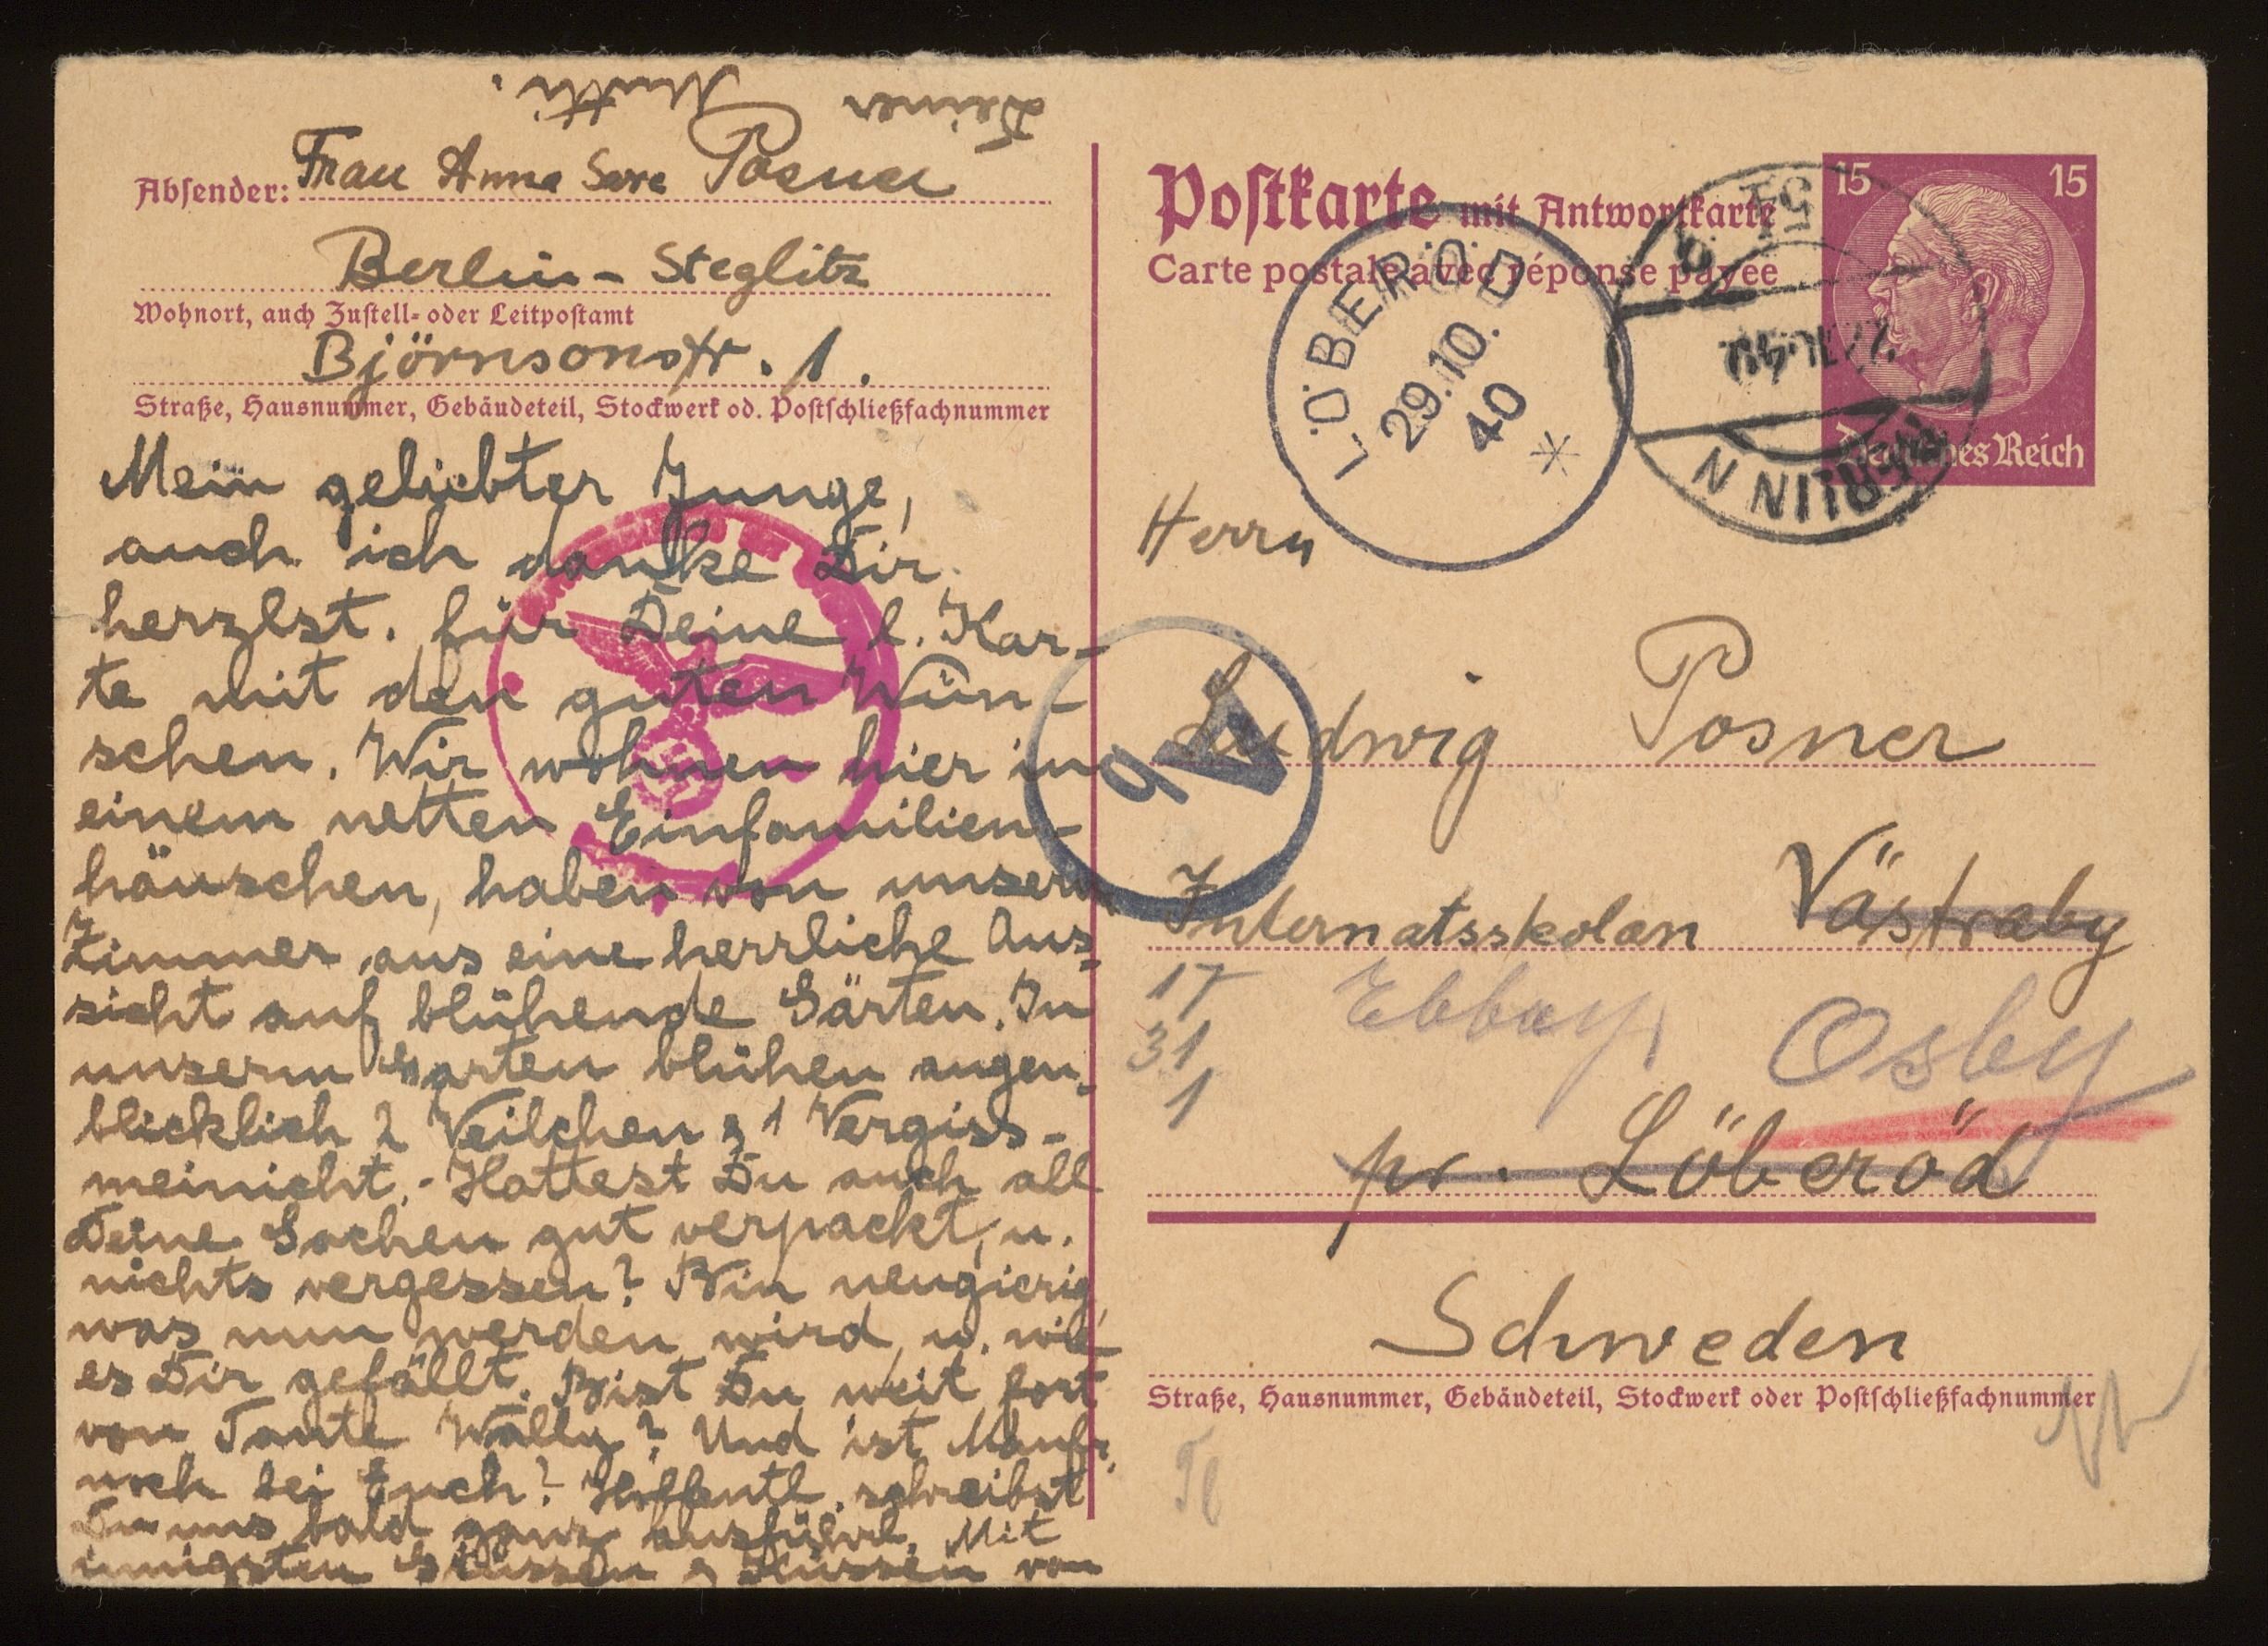 Absender: Frau Anna Sara Posner
Berlin - Steglitz
Wohnort, auch Zustell- oder Leitpostamt
Björnsonstr. 1.
Straße, Hausnummer, Gebäudeteil, Stockwerk od. Postschließfachnummer
Mein geliebter Junge,
auch ich danke Dir
herzlst. für Deine l. Kar-
te mit den guten Wün-
schen. Wir wohnen hier in
einem netten Einfamilien-
häuschen, haben von unserm
Zimmer aus eine herrliche Aus-
sicht auf blühende Gärten. In
unserm Garten blühen augen-
blicklich 2 Veilchen & 1 Vergiss-
meinicht. - Hattest Du auch all
Deine Sachen gut verpackt, u.
nichts vergessen? Bin neugierig,
was nun werden wird, u. wie
es Dir gefällt. Bist Du weit fort
von Tante Wally? Und ist Manfr.
noch bei Euch? Hoffentl. schreibst
Du uns bald ganz ausführl. Mit
innigsten Grüssen & Küssen von
Deiner Mutti.
Postkarte mit Antwortkarte
Carte postale avec réponse payée
15 15
Deutsches Reich
LÖBERÖD
29.10.
40
BERLIN N
Herrn
Ludwig Posner
A b
Internatsskolan Västraby
17
31
1
Osby
pr. Löberöd
Schweden
Straße, Hausnummer, Gebäudeteil, Stockwerk oder Postschließfachnummer